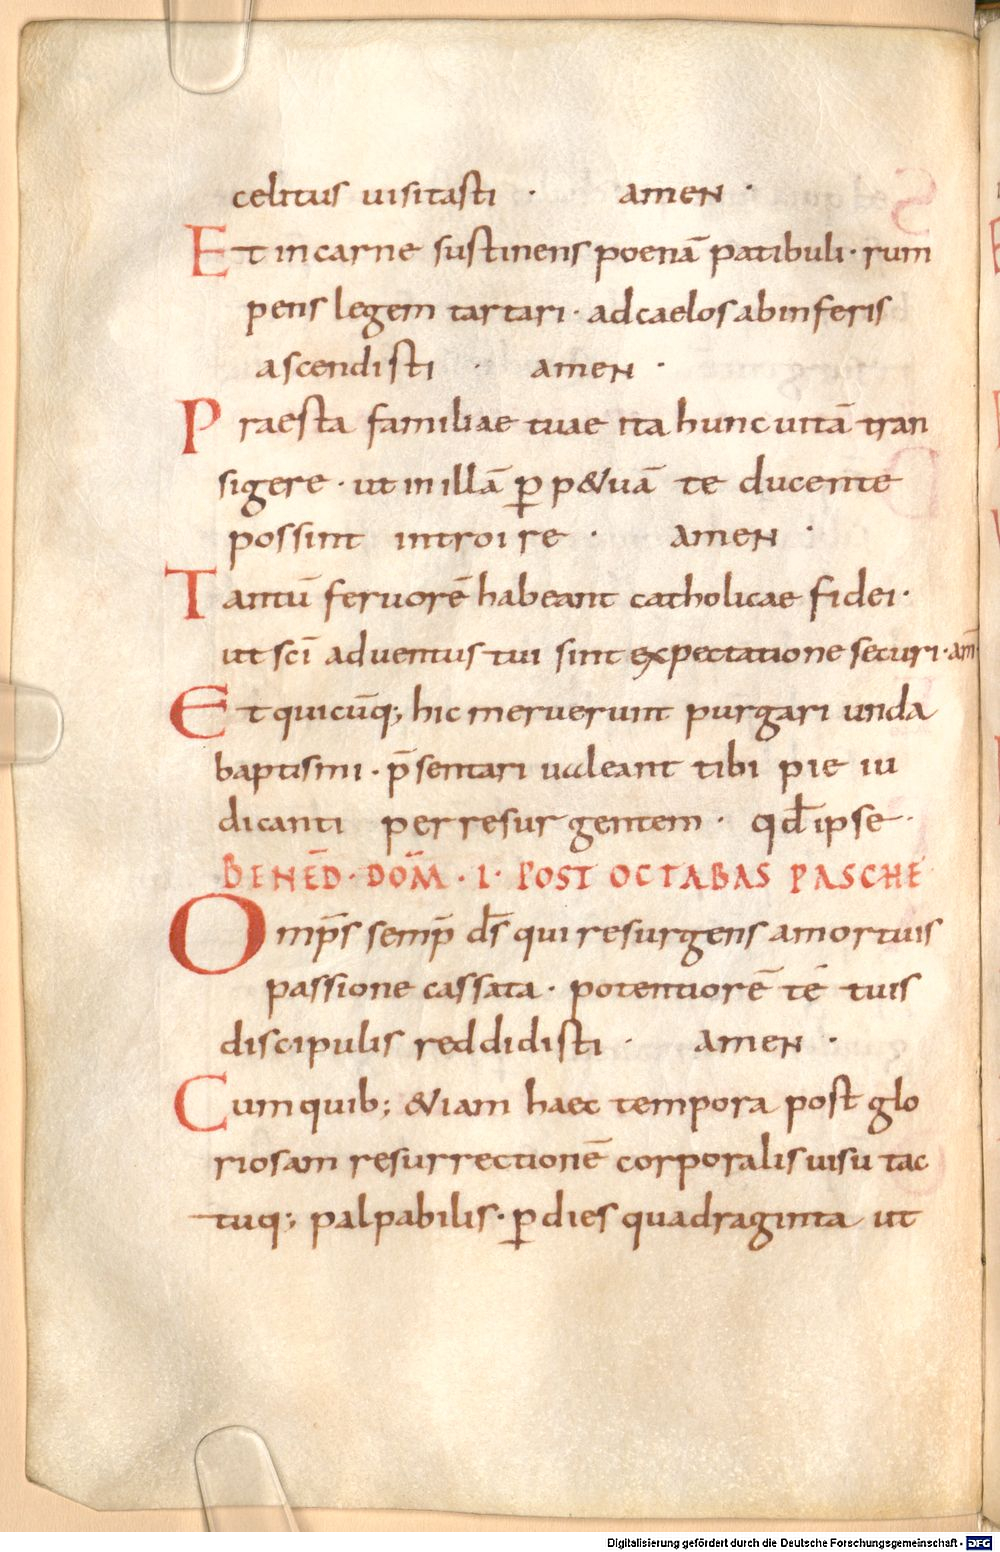 celitus uisitasti · amen ·
Et in carne sustinens poenā patibuli · rum
pens legem tartari · ad caelos ab inferis
ascendisti · amen ·
Praesta familiae tuae ita hunc uitā tran
sigere · ut in illā ꝑ p&uā te ducente
possint introire · amen ·
Tantū feruorē habeant catholicae fidei ·
ut scī aduentus tui sint expectatione securi · am̄
Et quicūq; hic meruerunt purgari unda
baptismi · p̄sentari ualeant tibi pie iu
dicanti per resurgentem · qd̄ ipse ·
BENED̄ · DOM̄ · I · POST OCTABAS PASCHE
Omp̄s semp̄ ds̄ qui resurgens a mortuis
passione cassata · potentiorē tē tuis
discipulis reddidisti · amen ·
Cum quib; &iam haec tempora post glo
riosam resurrectionē corporalis uisu tac
tuq; palpabilis · ꝑ dies quadraginta ut
Digitalisierung gefördert durch die Deutsche Forschungsgemeinschaft - DFG